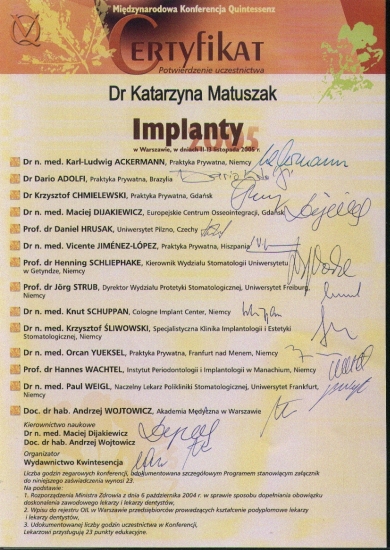 Międzynarodowa Konferencja Quintessenz
CERTYFIKAT
Potwierdzenie uczestnictwa
Dr Katarzyna Matuszak
Implanty
w Warszawie, w dniach 11-13 listopada 2005 r.
Dr n. med. Karl-Ludwig ACKERMANN, Praktyka Prywatna, Niemcy
Dr Dario ADOLFI, Praktyka Prywatna, Brazylia
Dr Krzysztof CHMIELEWSKI, Praktyka Prywatna, Gdańsk
Dr n. med. Maciej DIJAKIEWICZ, Europejskie Centrum Osseointegracji, Gdańsk
Prof. dr Daniel HRUSAK, Uniwersytet Pilzno, Czechy
Dr n. med. Vicente JIMÉNEZ-LÓPEZ, Praktyka Prywatna, Hiszpania
Prof. dr Henning SCHLIEPHAKE, Kierownik Wydziału Stomatologii Uniwersytetu
w Getyndze, Niemcy
Prof. dr Jörg STRUB, Dyrektor Wydziału Protetyki Stomatologicznej, Uniwersytet Freiburg,
Niemcy
Dr n. med. Knut SCHUPPAN, Cologne Implant Center, Niemcy
Dr n. med. Krzysztof ŚLIWOWSKI, Specjalistyczna Klinika Implantologii i Estetyki
Stomatologicznej, Niemcy
Dr n. med. Orcan YUEKSEL, Praktyka Prywatna, Franfurt nad Menem, Niemcy
Prof. dr Hannes WACHTEL, Instytut Periodontologii i Implantologii w Monachium, Niemcy
Dr n. med. Paul WEIGL, Naczelny Lekarz Polikliniki Stomatologicznej, Uniwersytet Frankfurt,
Niemcy
Doc. dr hab. Andrzej WOJTOWICZ, Akademia Medyczna w Warszawie
Kierownictwo naukowe
Dr n. med. Maciej Dijakiewicz
Doc. dr hab. Andrzej Wojtowicz
Organizator
Wydawnictwo Kwintesencja
Liczba godzin zegarowych konferencji, udokumentowana szczegółowym Programem stanowiącym załącznik
do niniejszego zaświadczenia wynosi 23.
Na podstawie:
1. Rozporządzenia Ministra Zdrowia z dnia 6 października 2004 r. w sprawie sposobu dopełniania obowiązku
doskonalenia zawodowego lekarzy i lekarzy dentystów,
2. Wpisu do rejestru OIL w Warszawie przedsiębiorców prowadzących kształcenie podyplomowe lekarzy
i lekarzy dentystów,
3. Udokumentowanej liczby godzin uczestnictwa w Konferencji,
Lekarzowi przysługują 23 punkty edukacyjne.